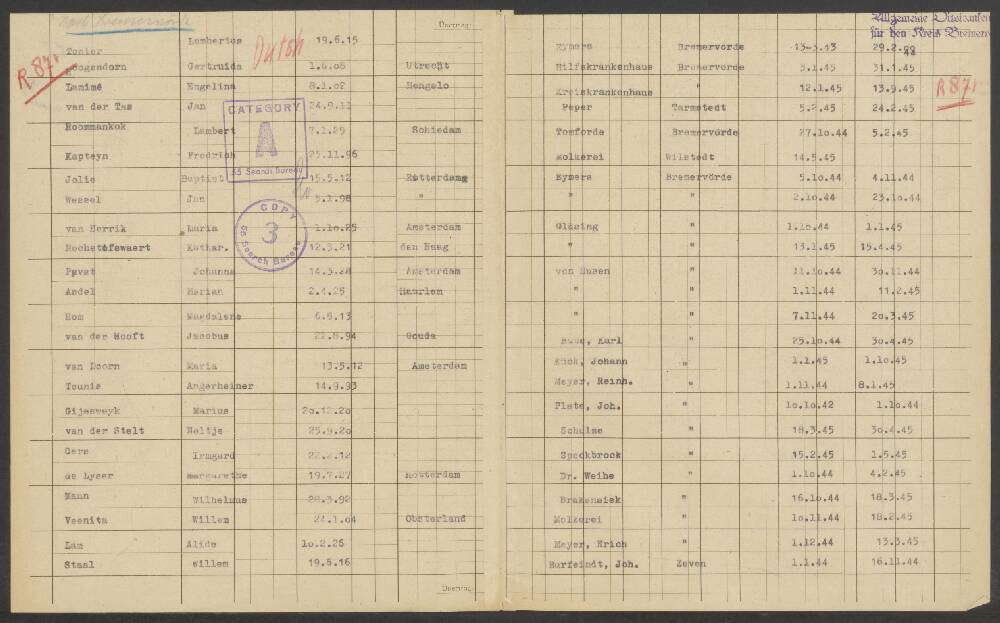 Übertrag:
Allgemeine Ortskranken
für den Kreis Bremerv
Dutch
R 871
R 871
CATEGORY
A
SS Search Bureau
COPY
3
SS Search Bureau
Tonier Lamberius 19.6.15 Eymers Bremervörde 29.2.44
Hoogendorn Gertruida 1.6.08 Utrecht Hilfskrankenhaus Bremervörde 3.1.45 31.1.45
Lanimé Engelina 8.1.02 Hengelo Kreiskrankenhaus " 12.1.45 13.9.45
van der Tas Jan 24.9.12 Peper Tarmstedt 5.2.45 24.2.45
Roommankok Lambert 7.1.29 Schiedam Tomforde Bremervörde 27.10.44 5.2.45
Kapteyn Fredrich 25.11.96 Molkerei Wilstedt 14.5.45
Jolie Baptist 15.5.12 Rotterdam Eymers Bremervörde 5.10.44 4.11.44
Wessel Jan 5.1.98 " " " 2.10.44 23.10.44
van Herrik Maria 1.10.25 Amsterdam Glüsing " 1.10.44 1.1.45
Kathar. 12.3.21 den Haag " " 13.1.45 15.4.45
Johanna 14.3.24 Amsterdam von Husen " 11.10.44 30.11.44
Andel Marian 2.4.25 Haarlem " " 1.11.44 11.2.45
Hom Magdalena 6.6.13 " " 7.11.44 20.3.45
van der Hooft Jacobus 22.8.94 Gouda Karl " 25.10.44 30.4.45
van Doorn Maria 13.5.12 Amsterdam Johann " 1.1.45 1.10.45
Teunis Angerheiner 14.9.93 Meyer, Reinh. " 1.11.44 8.1.45
Gijesweyk Marius 20.12.20 Plate, Joh. " 10.10.42 1.10.44
van der Stelt Neltje 25.9.20 Schulse " 18.3.45 30.4.45
Gers Irmgard 22.2.12 Speckbrock " 15.2.45 1.5.45
de Lyser Margarethe 19.7.27 Rotterdam Dr. Weihe " 1.10.44 4.2.45
Mann Wilhelmus 28.3.92 Brakensiek " 16.10.44 18.3.45
Veenita Willem 24.1.04 Obsterland Molkerei " 10.11.44 18.2.45
Lam Alide 10.2.26 Meyer, Erich " 1.12.44 13.3.45
Staal Willem 19.6.16 Burfeindt, Joh. Zeven 1.1.44 16.11.44
Übertrag: